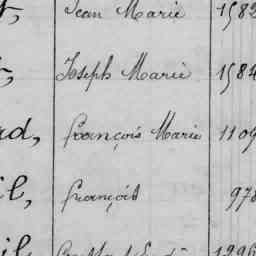 Jean Marie 1582
Joseph Marie 1584
rd, François Marie 1109
il, François 978
il 1296